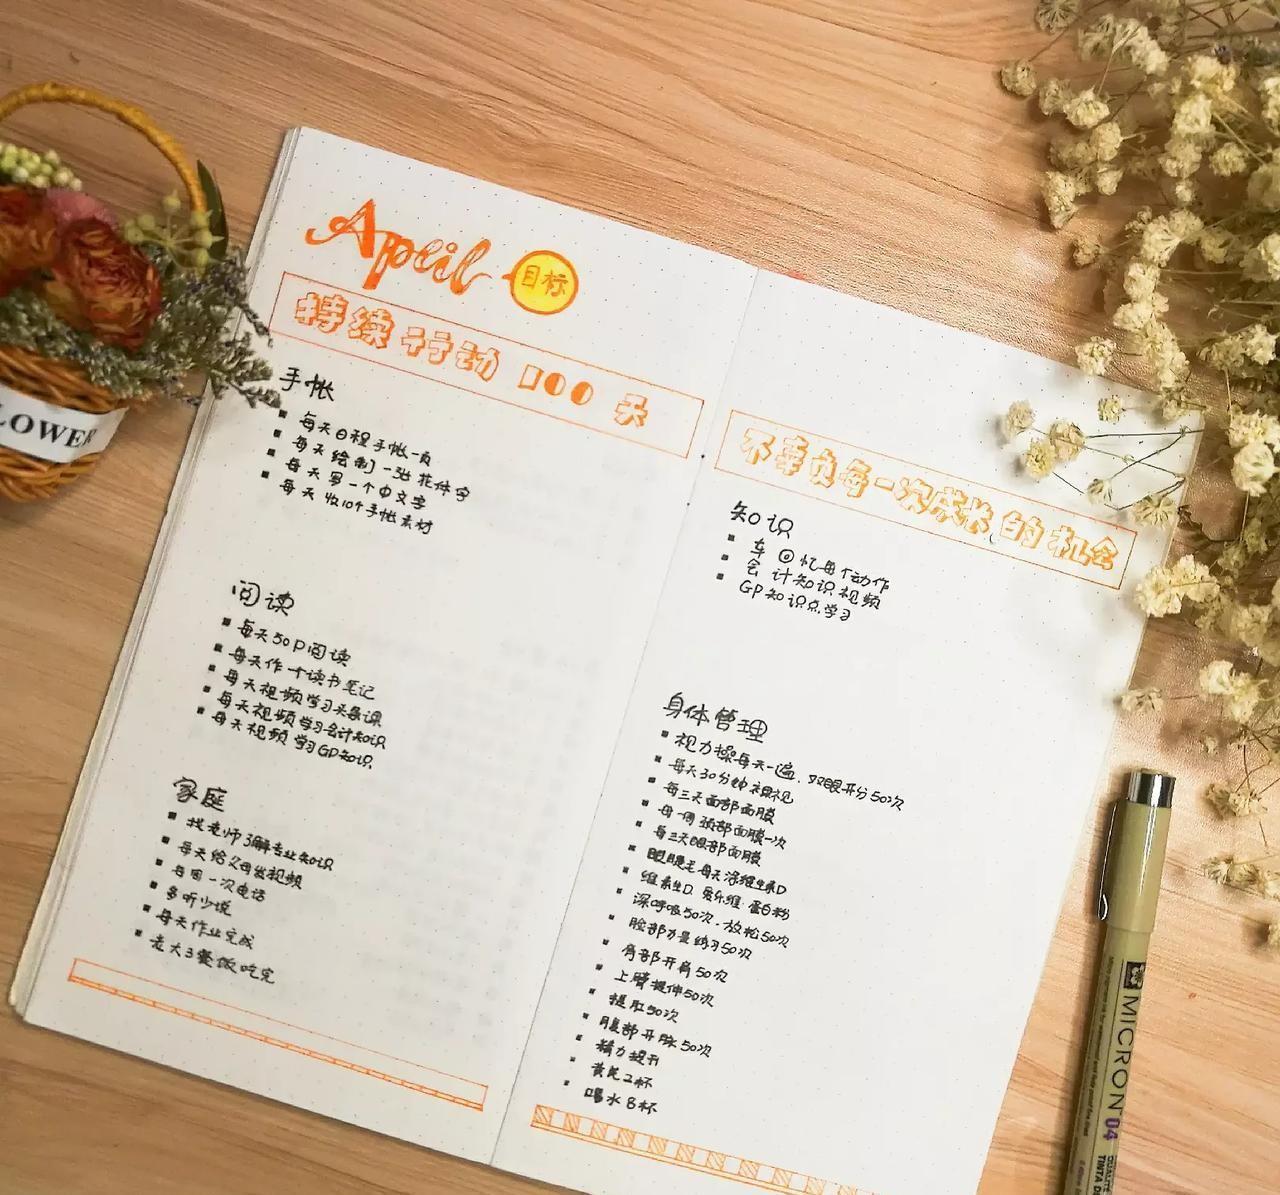 April 目标
持续行动 100 天
手帐
每天日程手帐一页
每天绘制一张花体字
每天写一个中文字
每天收10个手帐素材
阅读
每天50P阅读
每天作一个读书笔记
每天视频学习头条课
每天视频学习会计知识
每天视频学习GP知识
家庭
找老师了解专业知识
每天给父母发视频
每周一次电话
多听少说
每天作业完成
老大3餐饭吃完
不辜负每一次成长的机会
知识
车 回忆每个动作
会计知识视频
GP知识点学习
身体管理
视力操每天一遍、双眼开分50次
每天30分钟
每三天面部面膜
每周颈部面膜一次
每三天眼部面膜
眼睫毛每天涂维生素D
维素生D 爱乐维·蛋白粉
深呼吸50次·放松50次
脸部力量练习50次
肩部开肩50次
上臂提伸50次
提肛50次
腹部开脉50次
精力提升
黄芪2杯
喝水8杯
LOWER
MICRON 04